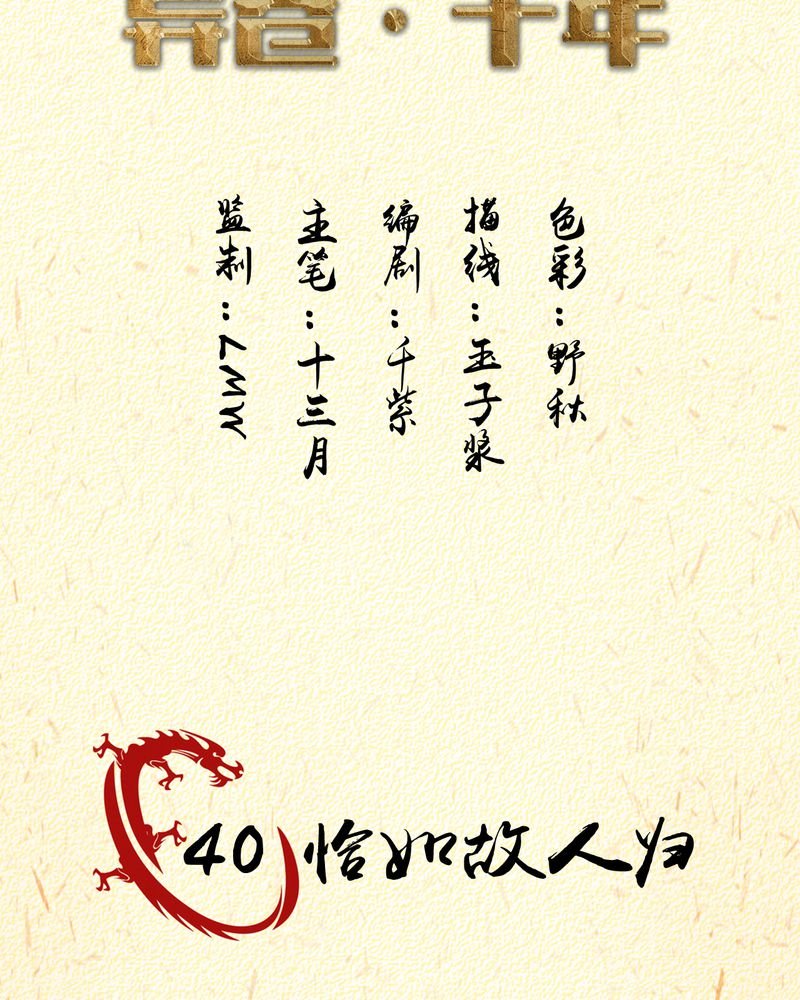 ·千年
色彩：野秋
描线：玉子浆
编剧：千紫
主笔：十三月
监制：LMW
40 恰如故人归